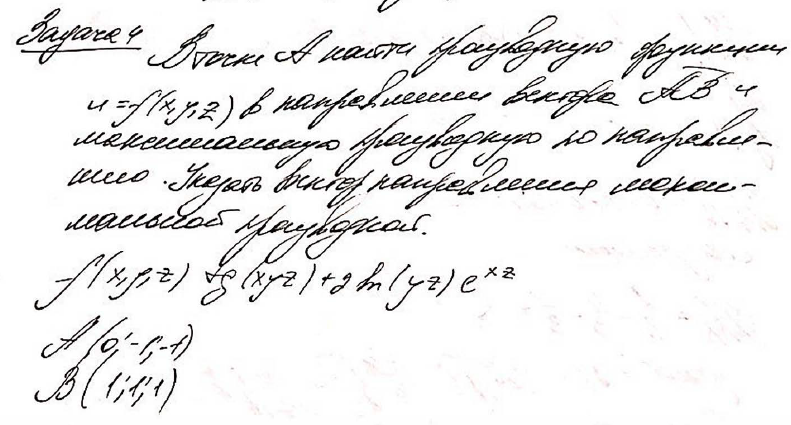 Задача 4 В точке А найти производную функции
u = f(x,y,z) в направлении вектора AB и
максимальную производную по направле-
нию. Указать вектор направления макси-
мальной производной.
f(x,y,z) tg(xyz)+2ln(yz)e^xz
A(0;-1;-1)
B(1;1;1)